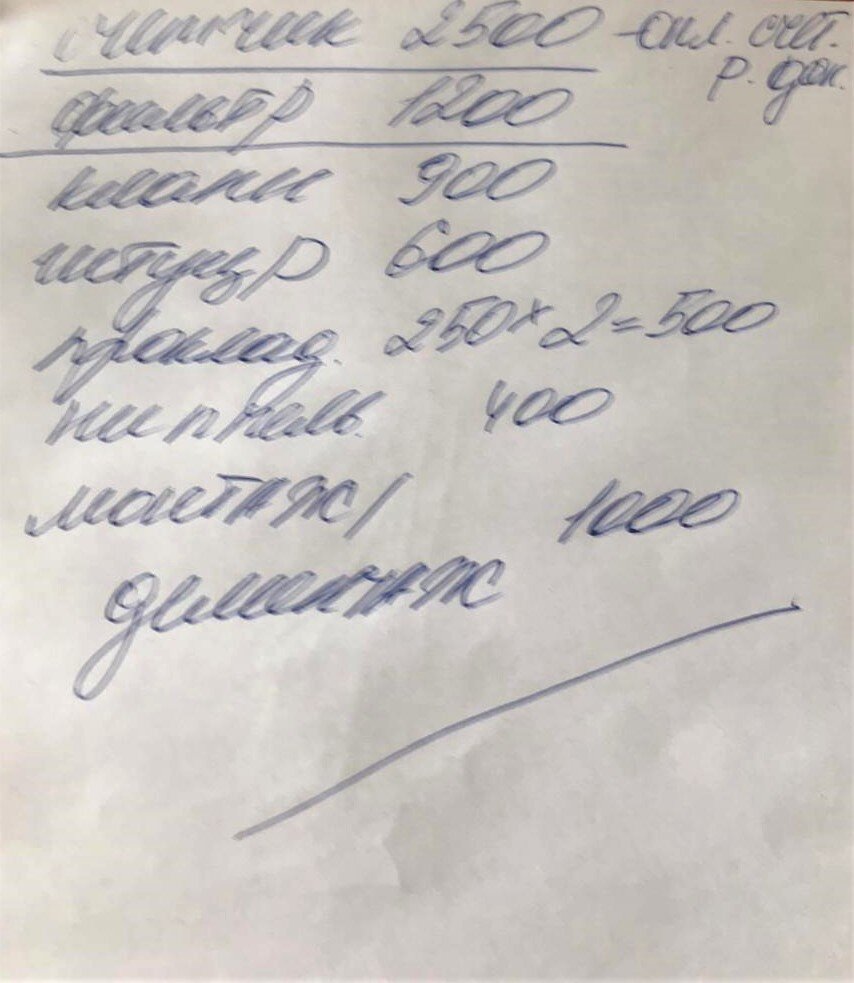 счетчик 2500 - опл. счет.
р. док.
фильтр 1200
клапн 900
штуцр 600
проклад. 250 x 2 = 500
ниппель. 400
монтаж/ 1000
демонтаж